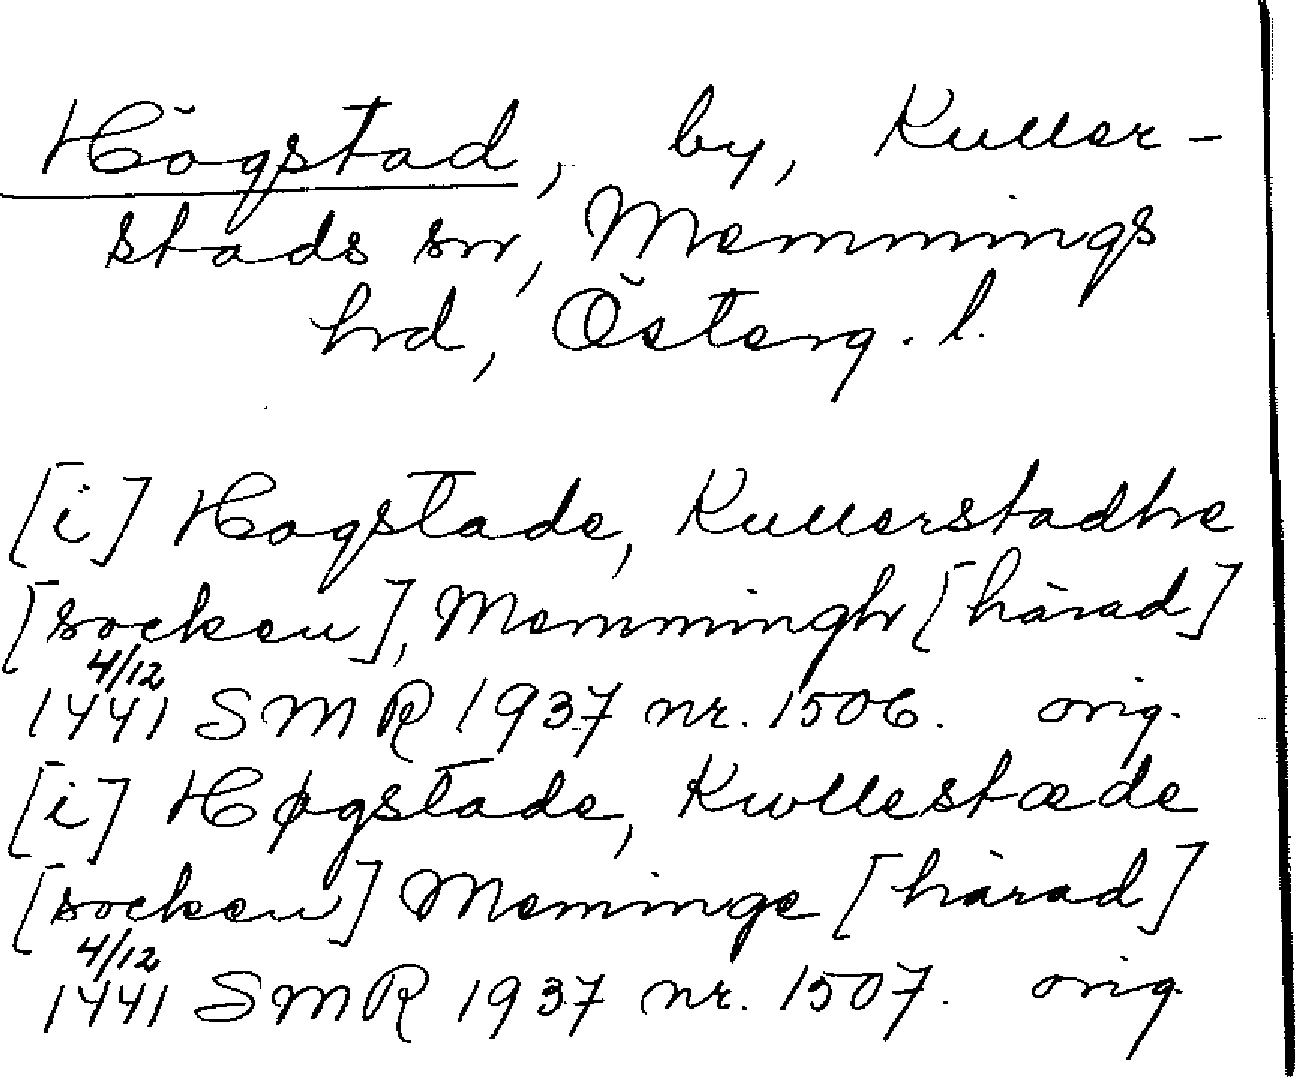 Högstad, by, Kuller-
stads sn, Memmings
hrd, Österg. l.
[i] Hogstade, Kullerstadhe
[socken], Memmingh [härad]
4/12
1441 SMR 1937 nr. 1506. orig.
[i] Høgstade, Kwllestæde
[socken] Meminge [härad]
4/12
1441 SMR 1937 nr. 1507. orig